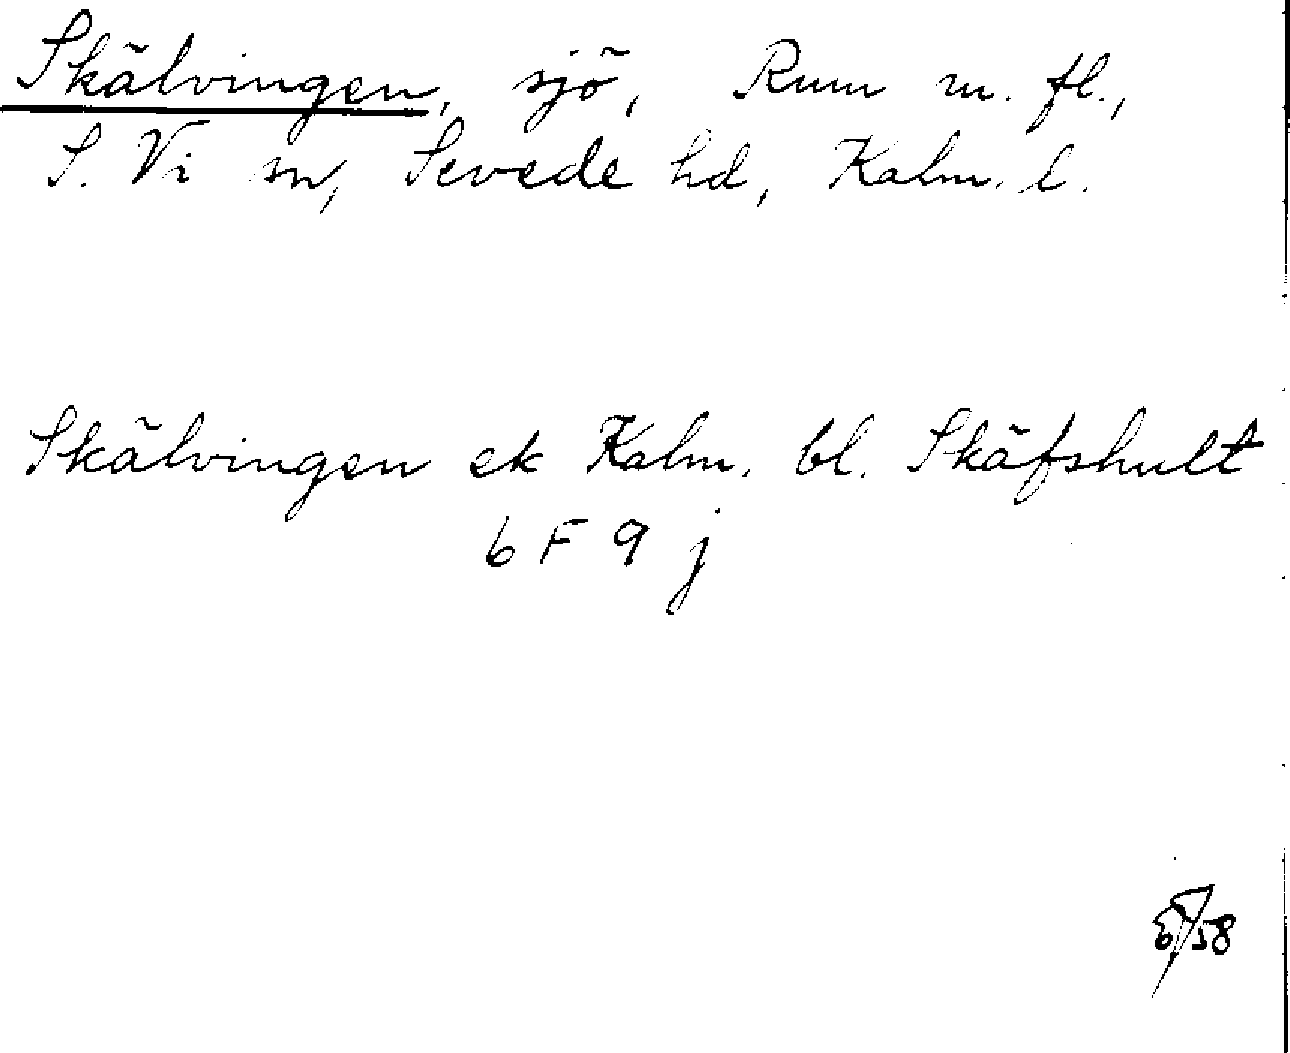 Skälvingen, sjö, Rum m. fl.,
S. Vi sn, Sevede hd, Kalm. l.
Skälvingen ek Kalm. bl. Skäfshult
6 F 9 j